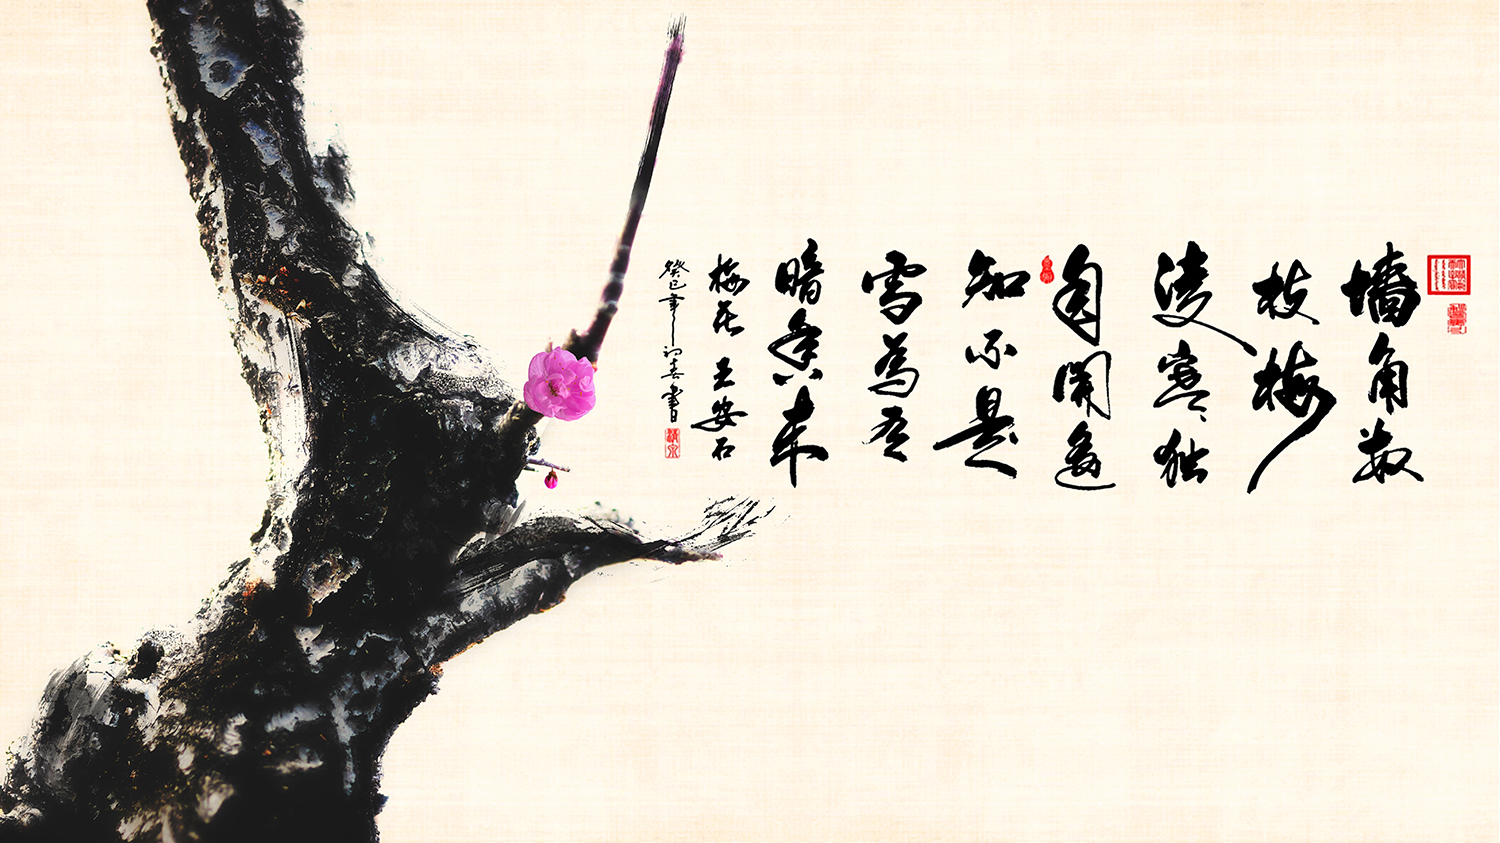 墙角数
枝梅
凌寒独
自開遥
知不是
雪為有
暗香来
梅花 王安石
癸巳年 書